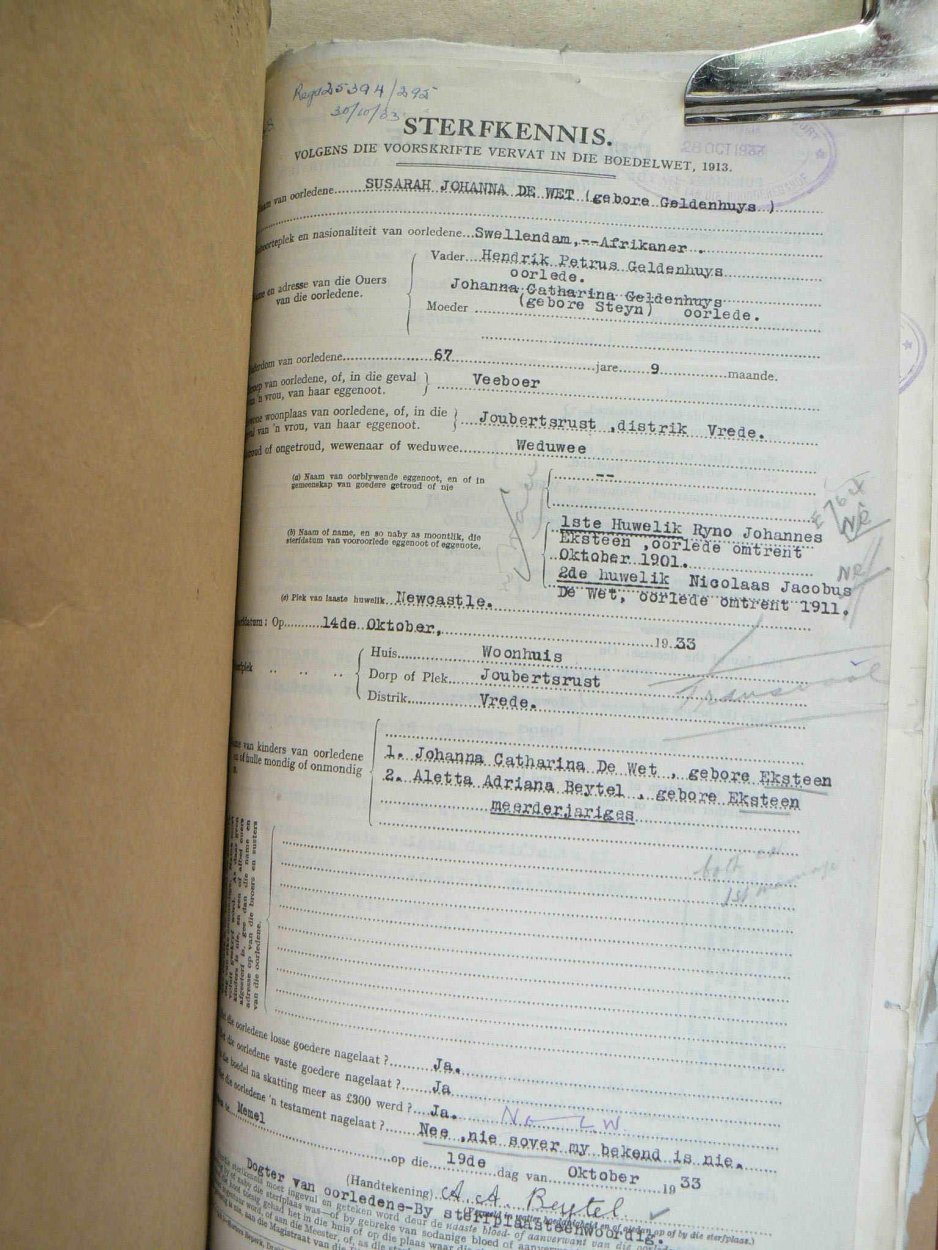 25394/295
30/10/33
28 OCT 1933
STERFKENNIS.
VOLGENS DIE VOORSKRIFTE VERVAT IN DIE BOEDELWET, 1913.
van oorledene SUSARAH JOHANNA DE WET (gebore Geldenhuys )
en nasionaliteit van oorledene Swellendam,--Afrikaner .
en adresse van die Ouers van die oorledene.
Vader Hendrik Petrus Geldenhuys
oorlede.
Johanna Catharina Geldenhuys
Moeder (gebore Steyn) oorlede.
van oorledene 67 jare 9 maande.
van oorledene, of, in die geval
'n vrou, van haar eggenoot. Veeboer
woonplaas van oorledene, of, in die
van 'n vrou, van haar eggenoot. Joubertsrust ,distrik Vrede.
of ongetroud, wewenaar of weduwee Weduwee
(a) Naam van oorblywende eggenoot, en of in
gemeenskap van goedere getroud of nie --
(b) Naam of name, en so naby as moontlik, die
sterfdatum van vooroorlede eggenoot of eggenote,
1ste Huwelik Ryno Johannes
Eksteen ,oorlede omtrent
Oktober 1901.
2de huwelik Nicolaas Jacobus
De Wet, oorlede omtrent 1911.
(c) Plek van laaste huwelik Newcastle.
Op 14de Oktober, 1933
Huis Woonhuis
Dorp of Plek Joubertsrust
Distrik Vrede.
Transvaal
van kinders van oorledene
of hulle mondig of onmondig
1. Johanna Catharina De Wet , gebore Eksteen
2. Aletta Adriana Beytel , gebore Eksteen
meerderjariges
both
1st marriage
adresse op van die broers en susters
van die oorledene.
die oorledene losse goedere nagelaat ? Ja.
die oorledene vaste goedere nagelaat ? Ja
die boedel na skatting meer as £300 werd ? Ja. No L.W.
die oorledene 'n testament nagelaat ? Nee ,nie sover my bekend is nie.
Memel op die 19de dag van Oktober 1933
(Handtekening) A. A. Beytel
Dogter van oorledene-By sterfplaasteenwoordig.